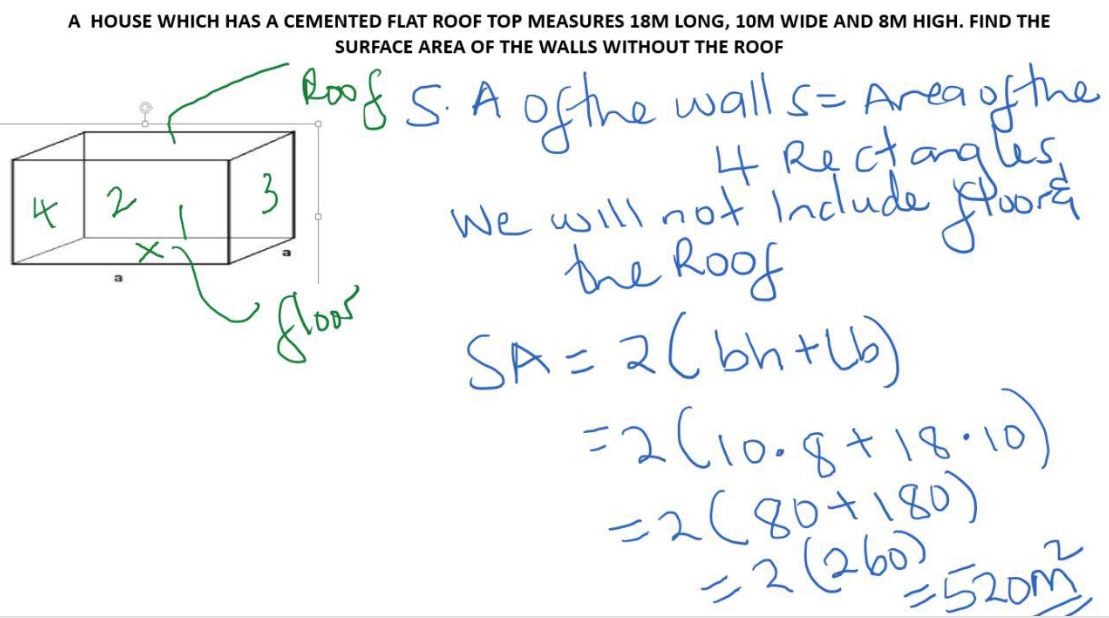 A HOUSE WHICH HAS A CEMENTED FLAT ROOF TOP MEASURES 18M LONG, 10M WIDE AND 8M HIGH. FIND THE
SURFACE AREA OF THE WALLS WITHOUT THE ROOF
Roof
S. A of the walls = Area of the
4 Rectangles
We will not Include floor &
the Roof
4 2 1 3
x
a
a
floor
SA = 2(bh+lb)
=2(10.8+18.10)
=2(80+180)
=2(260)
=520m²